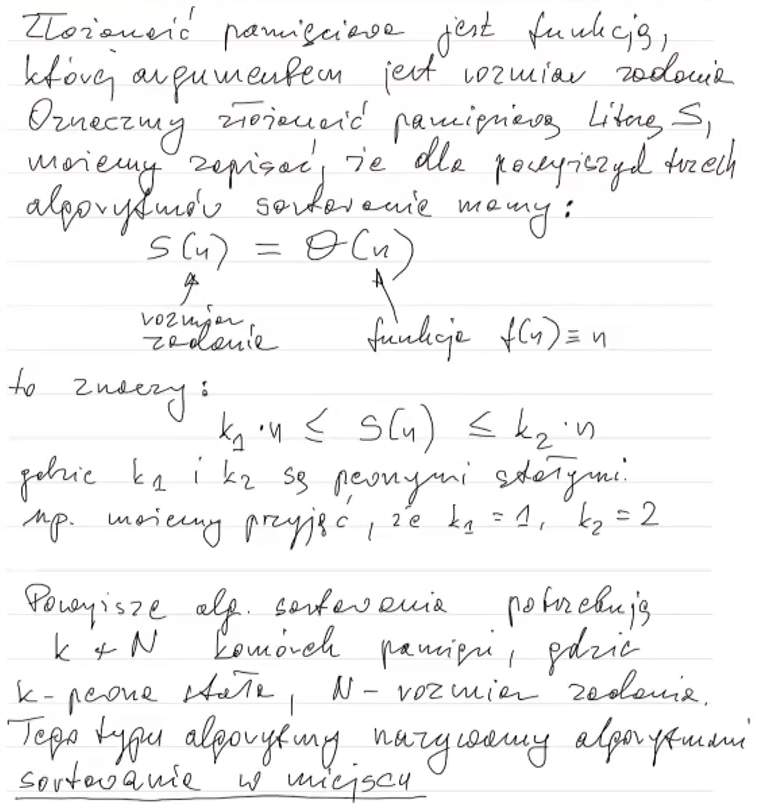 Złożoność pamięciowa jest funkcją,
której argumentem jest rozmiar zadania
Oznaczmy złożoność pamięciową literą S,
możemy zapisać, że dla powyższych trzech
algorytmów sortowania mamy:
S(n) = Θ(n)
rozmiar zadania
funkcja f(n) ≡ n
to znaczy:
k₁·n ≤ S(n) ≤ k₂·n
gdzie k₁ i k₂ są pewnymi stałymi.
np. możemy przyjąć, że k₁ = 1, k₂ = 2
Powyższe alg. sortowania potrzebują
k + N komórek pamięci, gdzie
k - pewna stała, N - rozmiar zadania.
Tego typu algorytmy nazywamy algorytmami
sortowania w miejscu